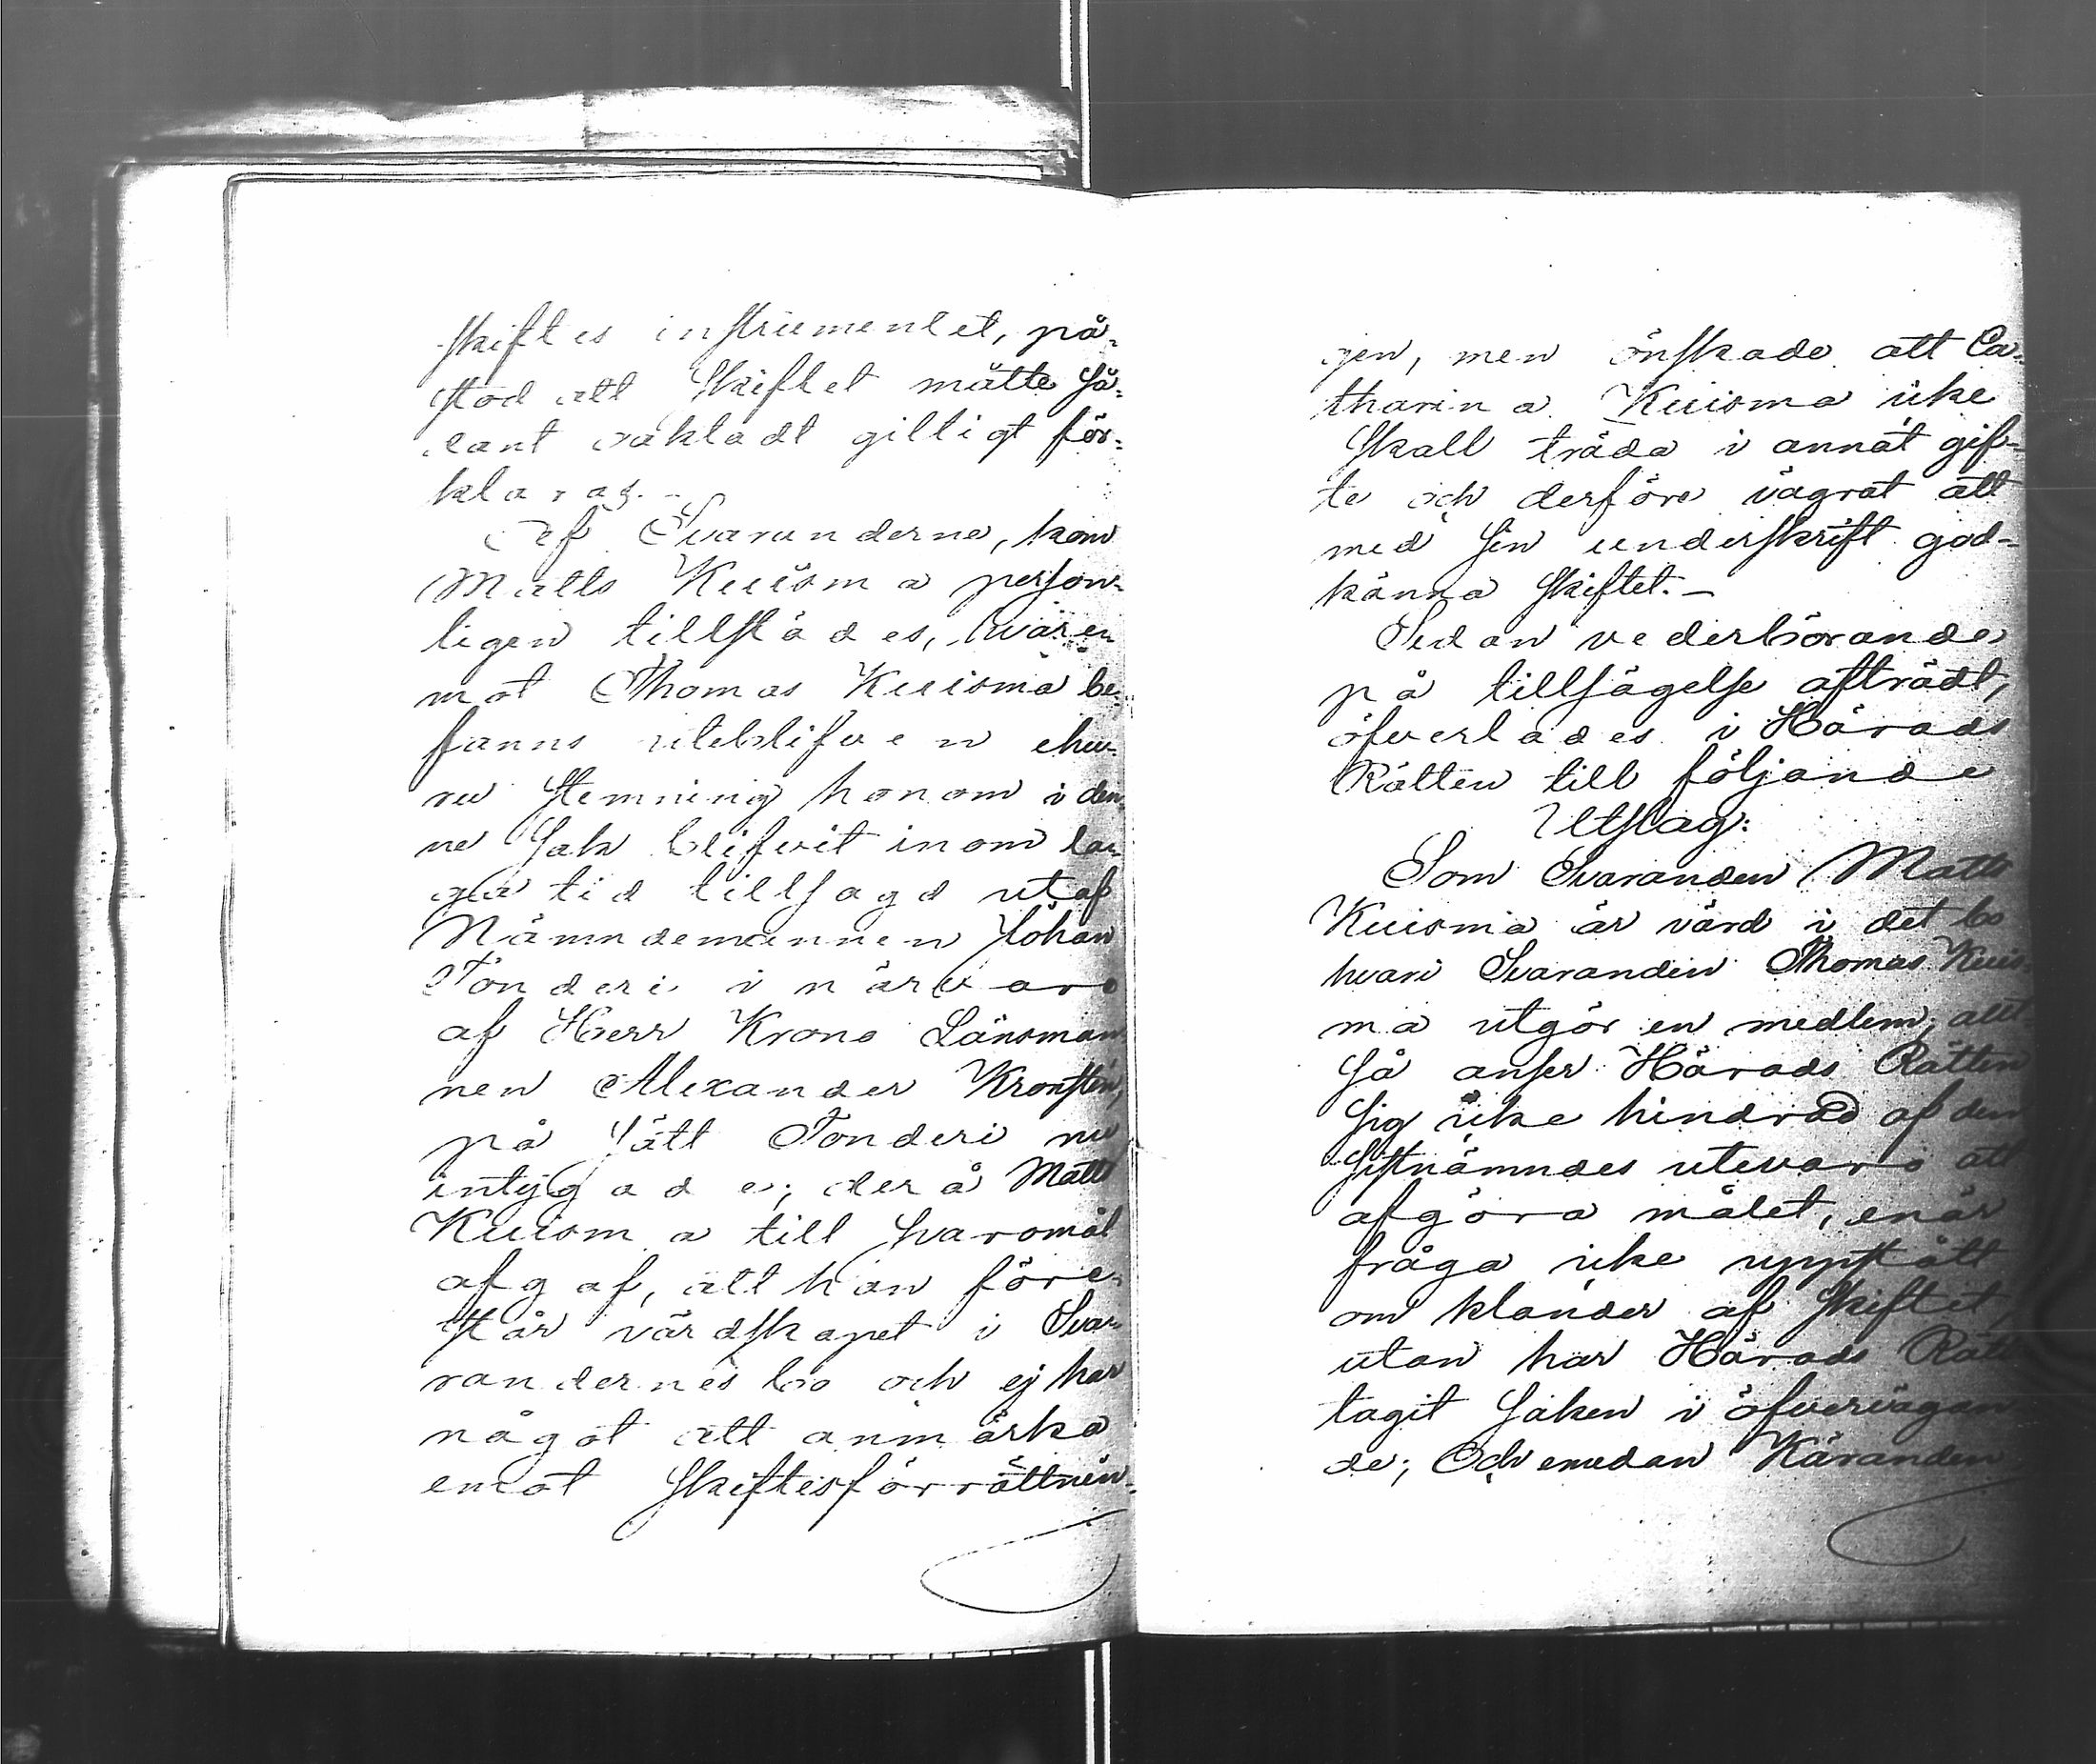 skiftes instrumentet, på-
stod att skiftet måtte så-
dant oakladt gilligt för-
klaras. -
Af Svarunderne, kom
Matts Kuisma person-
ligen tillstädes, hvaren
mot Thomas Kuisma be-
fanns utebliven ehu-
ru stemning honom i den-
ne sak blifvit inom la-
ga tid tillsagd utaf
Nämndemannen Johan
Tonderi i närvaro
af Herr Krono Länsman-
nen Alexander Kronstén,
på sätt Tonderi nu
intygade; derå Matts
Kuisma till svaromål
afgaf, att han före-
står värdskapet i Sva-
randernes bo och ej har
något att anmärka
emot skiftesförrättnin-
gen, men önskade att Ca-
tharina Kuisma icke
skall träda i annat gif-
te och derföre vägrat att
med sin underskrift god-
känna skiftet. -
Sedan vederbörande
på tillsägelse afträdt,
öfverlades i Härads
Rätten till följande
Utslag:
Som Svaranden Matts
Kuisma är värd i det bo
hvari Svaranden Thomas Kuis-
ma utgör en medlem, allt-
så anser Härads Rätten
sig icke hindrad af den
sistnämndes utevaro att
afgöra målet, enär
fråga icke uppstått
om klander af skiftet,
utan har Härads Rätt
tagit saken i öfvervägan
de; Och emedan Käranden